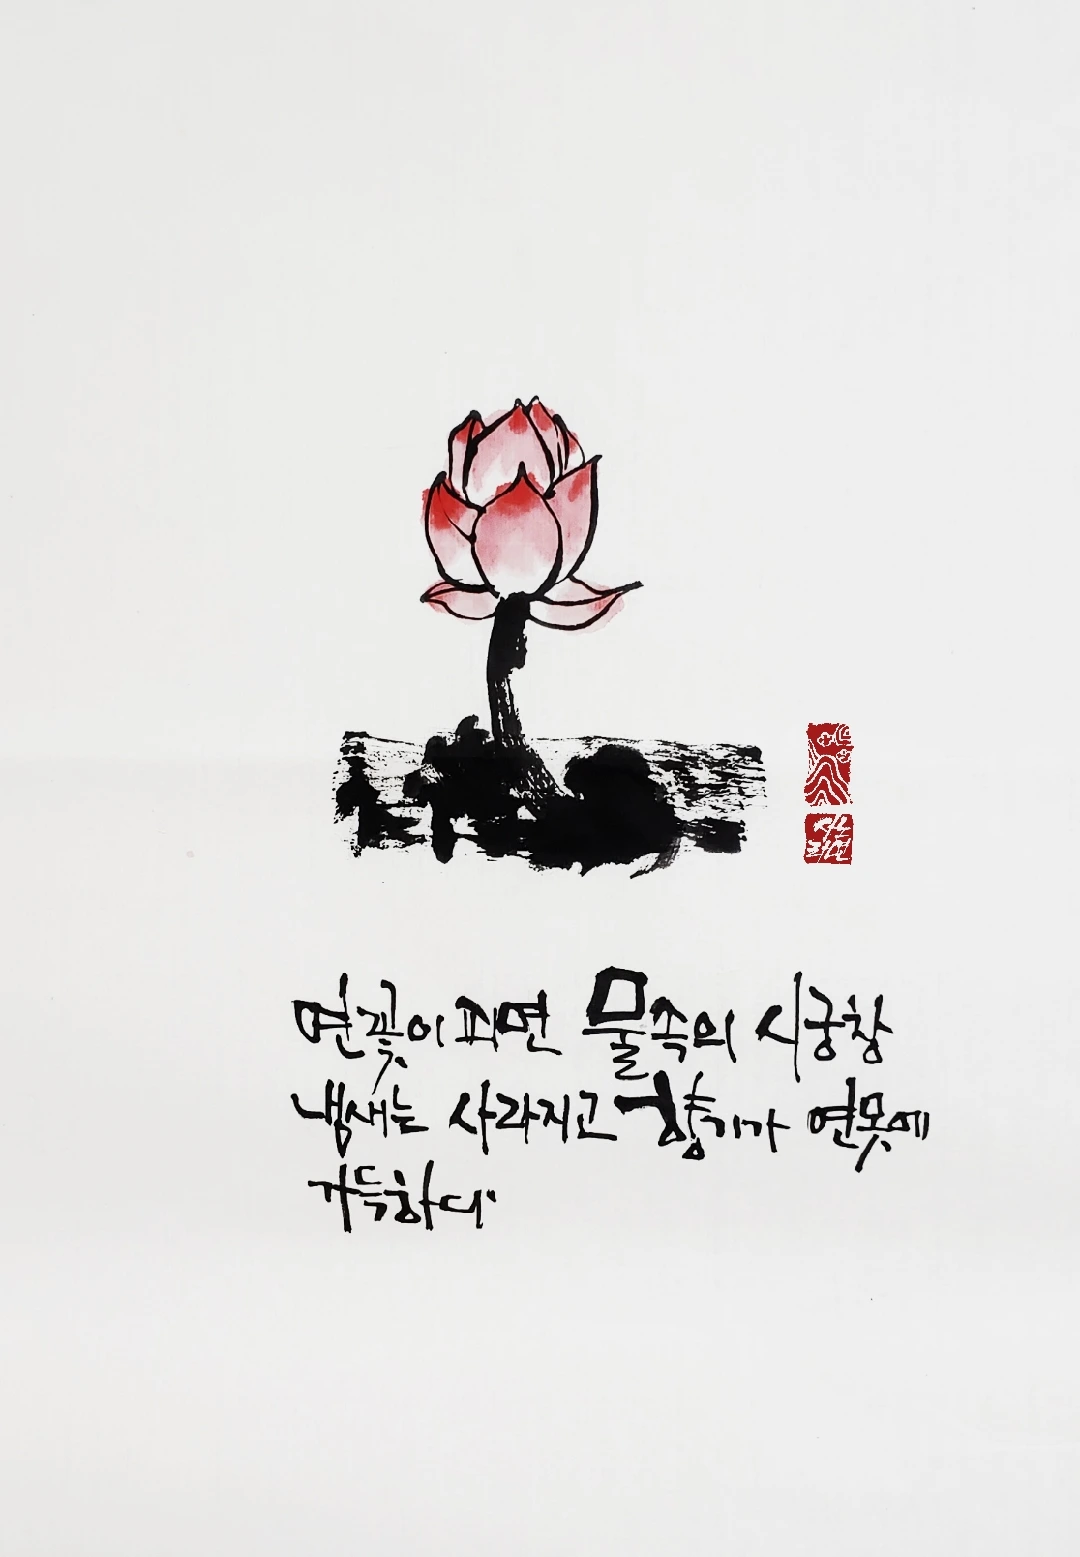 연꽃이 피면 물속의 시궁창
냄새는 사라지고 향기가 연못에
가득하다